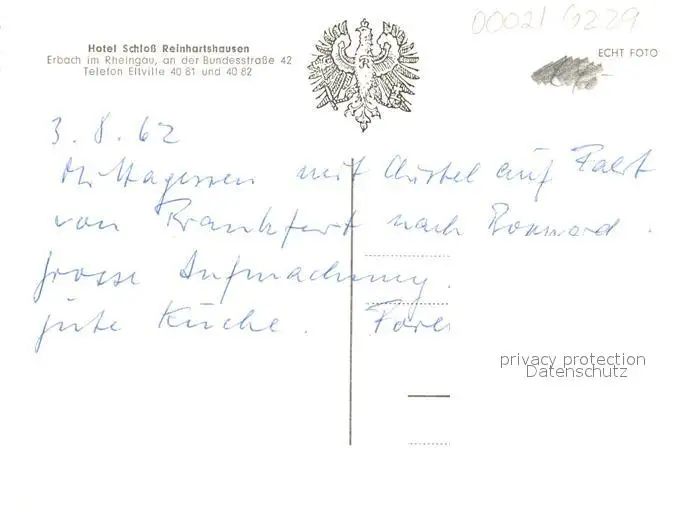 00021 4229
Hotel Schloß Reinhartshausen
Erbach im Rheingau, an der Bundesstraße 42
Telefon Eltville 40 81 und 40 82
ECHT FOTO
3. 8. 62
Mittagessen mit Christel auf Fahrt
von Frankfurt nach Boppard.
grosse Aufmachung.
gute Küche. Forel
privacy protection
Datenschutz